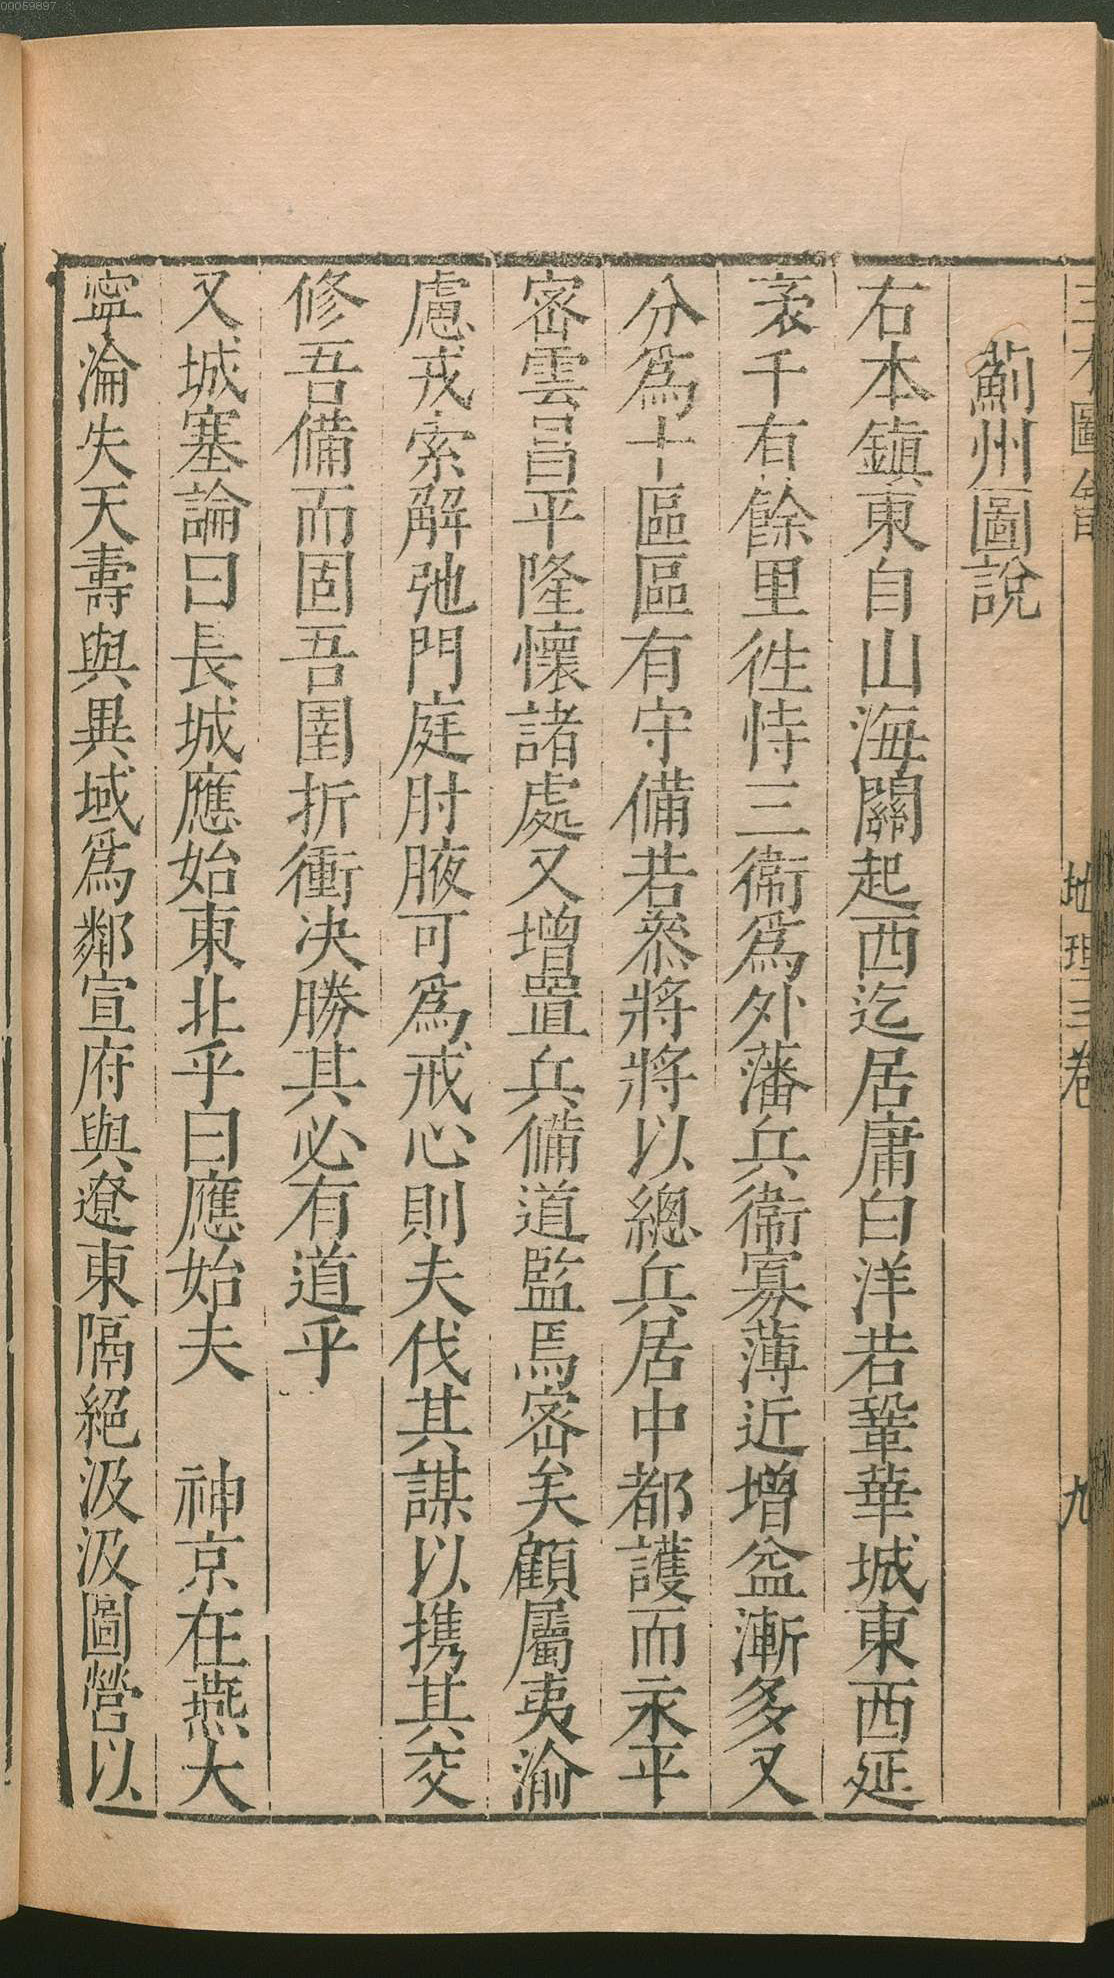 00059897
三才圖會 地理三卷 九
薊州圖說
右本鎮東自山海關起西迄居庸白洋若鞏華城東西延
袤千有餘里徃恃三衞爲外藩兵衞寡薄近增益漸多又
分爲十區區有守備若叅將將以總兵居中都護而永平
密雲昌平隆懷諸處又增置兵備道監焉密矣顧屬夷渝
慮戎索解弛門庭肘腋可爲戒心則夫伐其謀以携其交
修吾備而固吾圉折衝决勝其必有道乎
又城塞論曰長城應始東北乎曰應始夫 神京在燕大
寧淪失天壽與異域爲鄰宣府與遼東隔絕汲汲圖營以